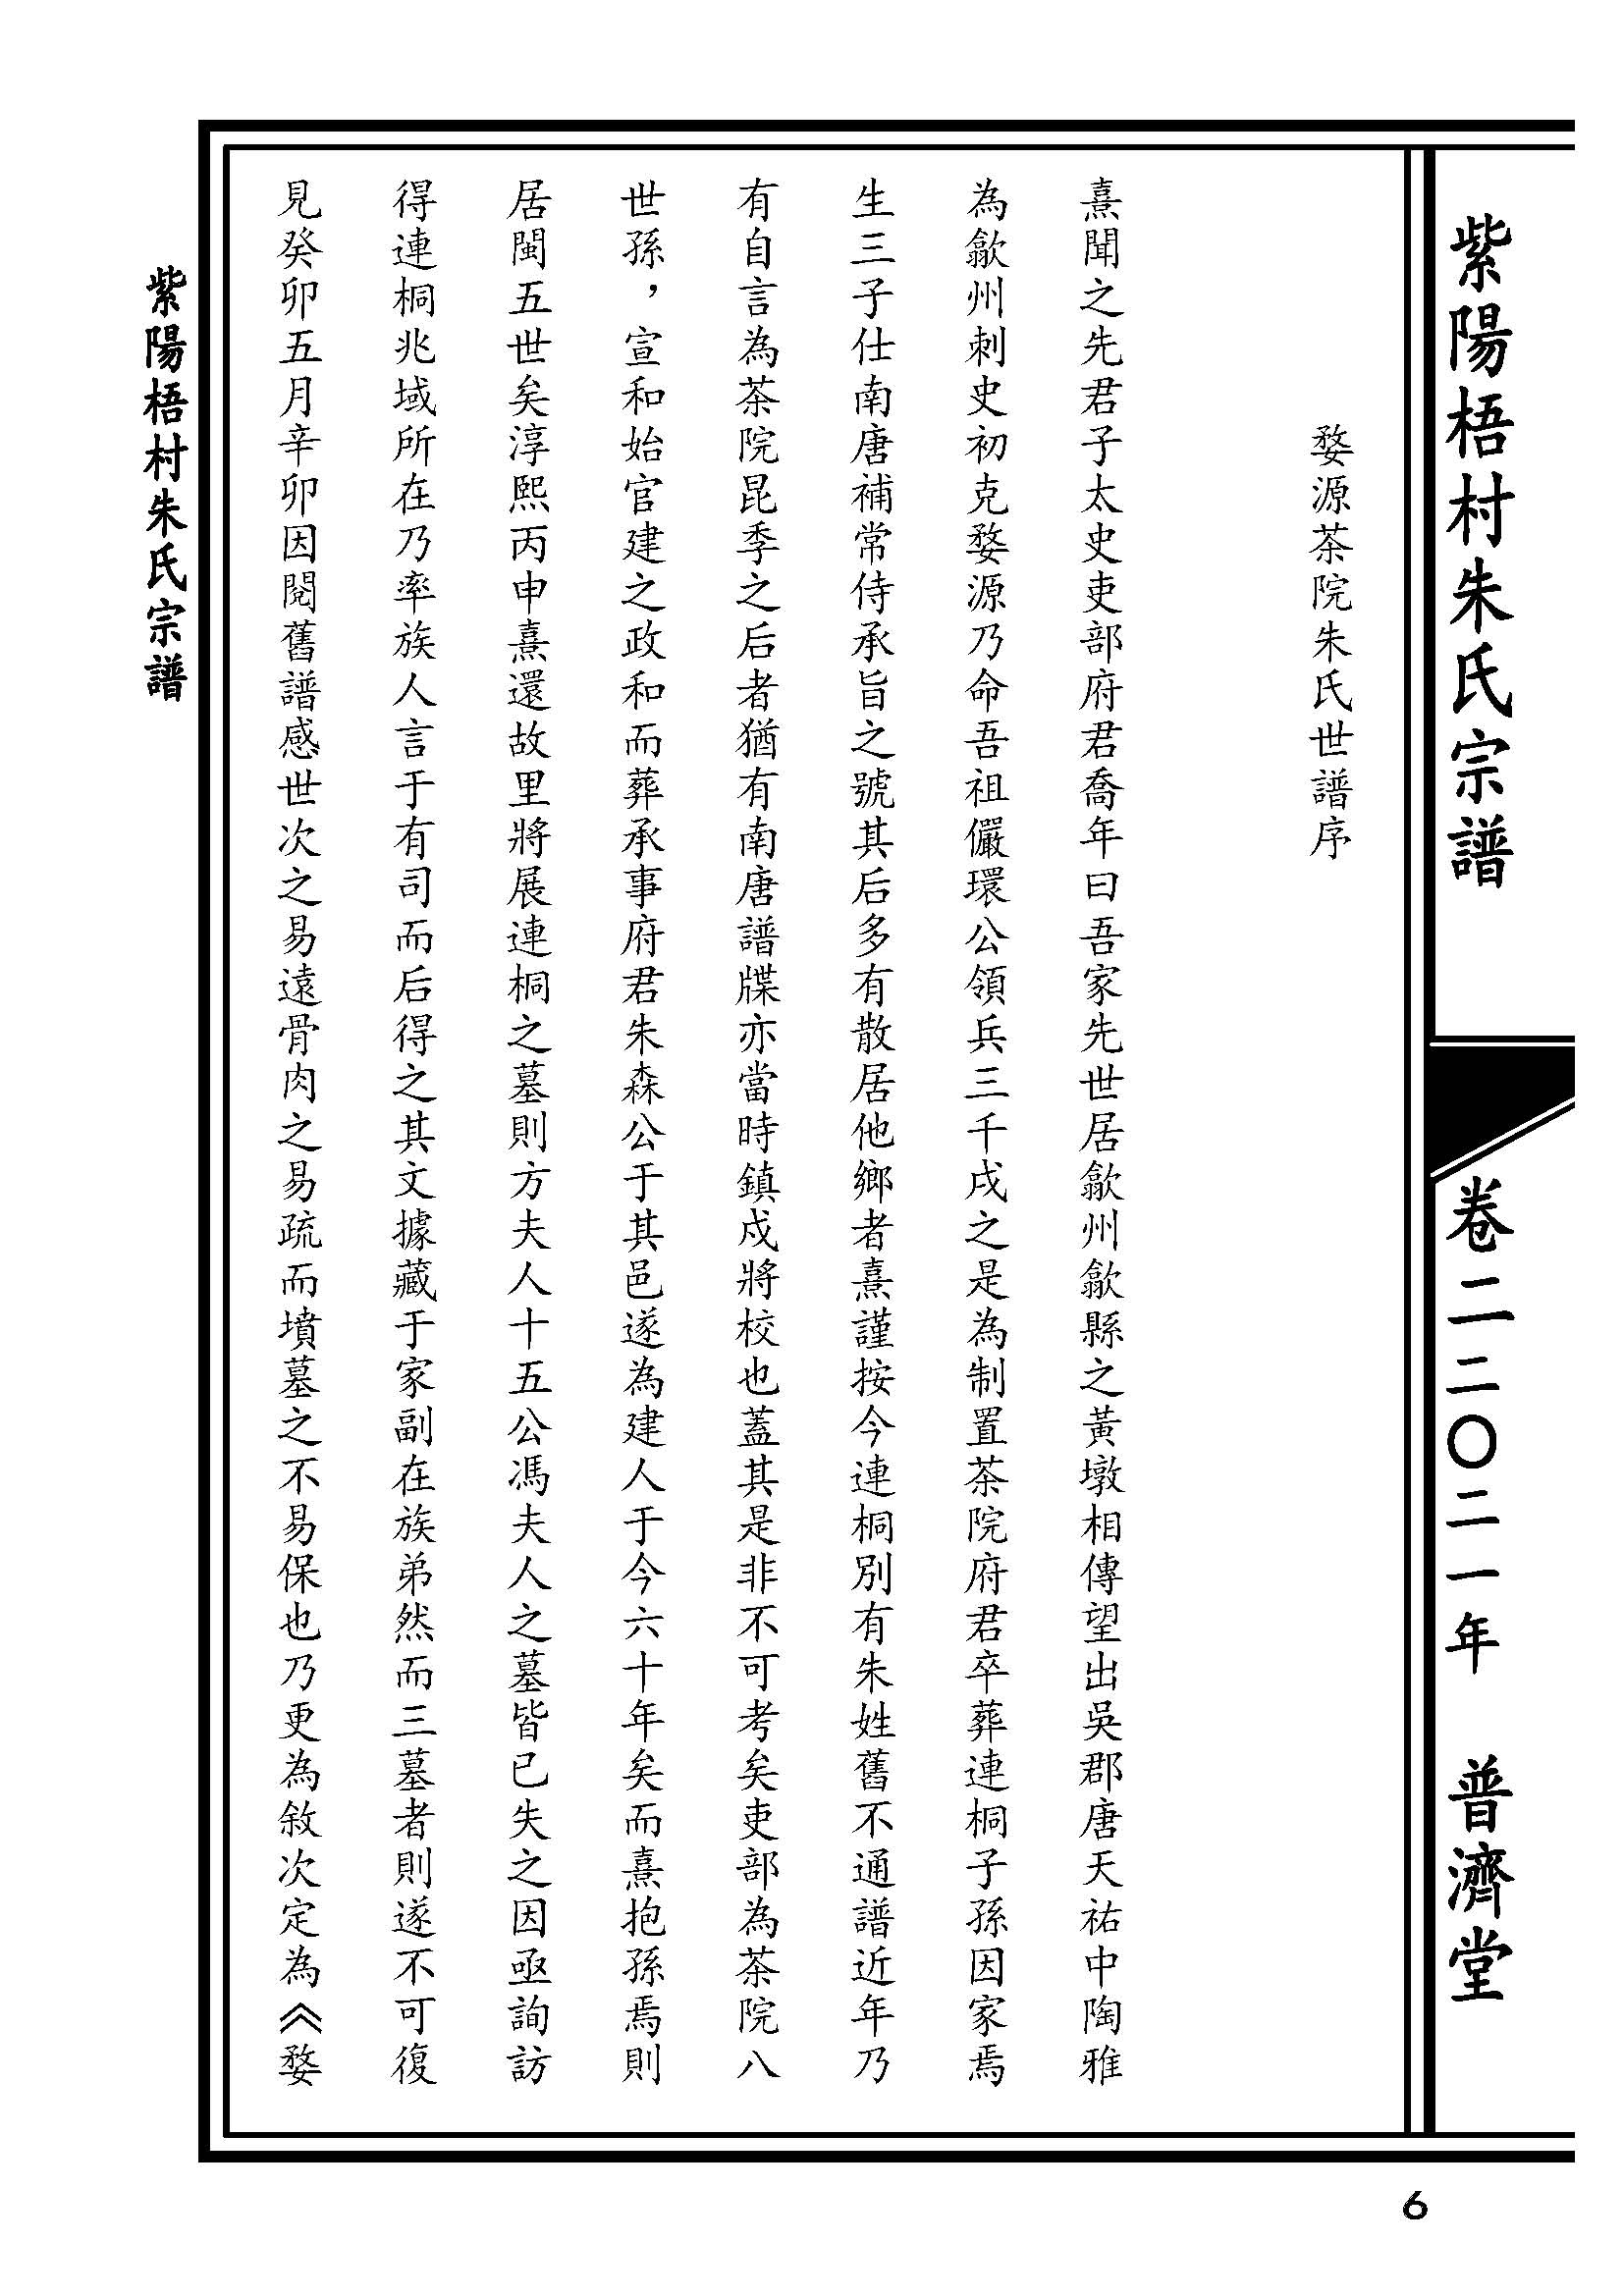 紫陽梧村朱氏宗譜
卷二
二〇二一年
普濟堂
婺源茶院朱氏世譜序
熹聞之先君子太史吏部府君喬年曰吾家先世居歙州歙縣之黃墩相傳望出吳郡唐天祐中陶雅
為歙州刺史初克婺源乃命吾祖儼環公領兵三千戍之是為制置茶院府君卒葬連桐子孫因家焉
生三子仕南唐補常侍承旨之號其后多有散居他鄉者熹謹按今連桐別有朱姓舊不通譜近年乃
有自言為茶院昆季之后者猶有南唐譜牒亦當時鎮戍將校也蓋其是非不可考矣吏部為茶院八
世孫，宣和始官建之政和而葬承事府君朱森公于其邑遂為建人于今六十年矣而熹抱孫焉則
居閩五世矣淳熙丙申熹還故里將展連桐之墓則方夫人十五公馮夫人之墓皆已失之因亟詢訪
得連桐兆域所在乃率族人言于有司而后得之其文據藏于家副在族弟然而三墓者則遂不可復
見癸卯五月辛卯因閱舊譜感世次之易遠骨肉之易疏而墳墓之不易保也乃更為敘次定為《婺
紫陽梧村朱氏宗譜
6